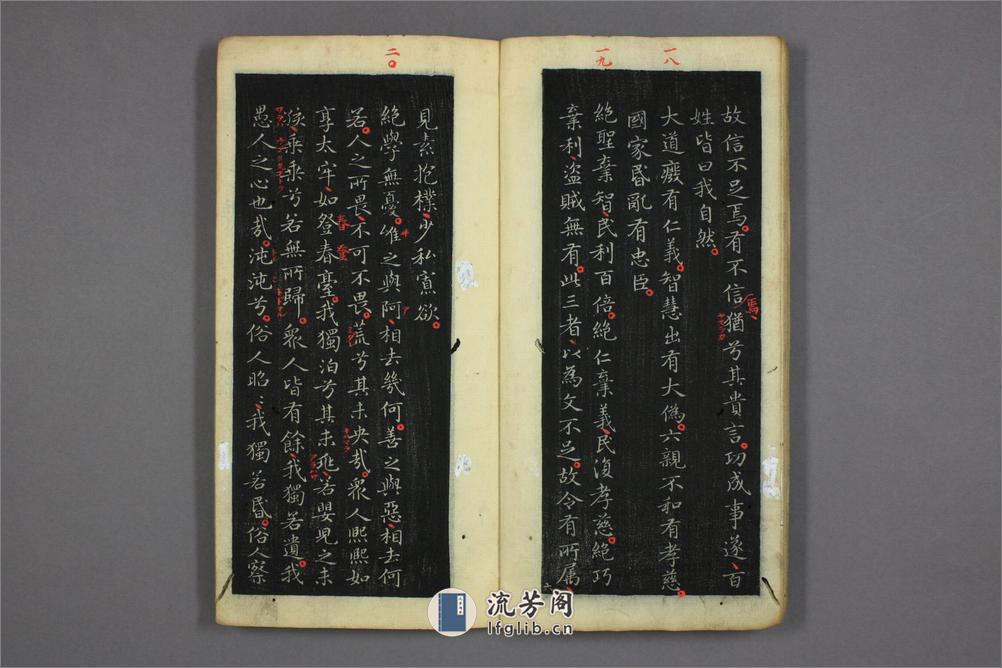 一八
一九
故信不足焉。有不信焉、猶兮其貴言。功成事遂、百
姓皆曰我自然。
大道癈有仁義。智慧出有大僞。六親不和有孝慈。
國家昬亂有忠臣。
絶聖棄智、民利百倍。絶仁棄義、民復孝慈。絶巧
棄利、盗賊無有。此三者、以為文不足。故令有所属、
二〇
見素抱樸、少私寡欲。
絶學無憂。唯之與阿、相去幾何。善之與惡、相去何
若。人之所畏、不可不畏。荒兮其未央哉。衆人熙熙如
享太牢、如登春臺。我獨泊兮其未兆、若嬰兒之未
孩、乘乘兮若無所歸。衆人皆有餘、我獨若遺。我
愚人之心也哉。沌沌兮。俗人昭〻、我獨若昬。俗人察
春 登
流芳阁
lfglib.cn